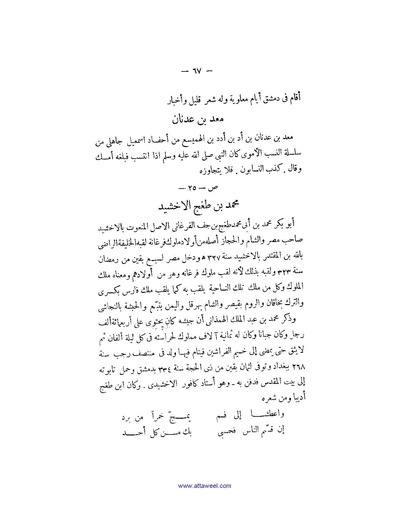 — ٦٧ —
أقام فى دمشق أيام معاوية وله شعر قليل وأخبار
معد بن عدنان
معد بن عدنان بن أد بن أدد بن الهميسع من أحفاد اسمعيل جاهلى من
سلسلة النسب الأموى كان النبى صلى الله عليه وسلم اذا انتسب فبلغه أمسك
وقال . كذب النسابون . فلا يتجاوزه
ص — ٢٥ —
محمد بن طغج الاخشيد
أبو بكر محمد بن أبى محمد طغج بن جف الفرغانى الاصل المنعوت بالاخشيد
صاحب مصر والشام والحجاز أصله من أولاد ملوك فرغانة لقبه الخليفة الراضى
بالله بن المقتدر بالاخشيد سنة ٣٢٧ ه ودخل مصر لسبع بقين من رمضان
سنة ٣٢٣ ولقبه بذلك لأنه لقب ملوك فرغانة وهو من أولادهم ومعناه ملك
الملوك وكل من ملك تلك الناحية يلقب به كما يلقب ملك فارس بكسرى
والترك بخاقان والروم بقيصر والشام بهرقل واليمن بتبع والحبشة بالنجاشى
وذكر محمد بن عبد الملك الهمذانى أن جيشه كان يحتوى على أربعمائة ألف
رجل وكان جبانا وكان له ثمانية آلاف مملوك لحراسته فى كل ليلة ألفان ثم
لا يثق حتى يمضى إلى خيم الفراشين فينام فيها ولد فى منتصف رجب سنة
٢٦٨ ببغداد وتوفى لثمان بقين من ذى الحجة سنة ٣٣٤ بدمشق وحمل تابوته
إلى بيت المقدس فدفن به — وهو أستاذ كافور الاخشيدى . وكان ابن طغج
أديبا ومن شعره
واعطشا إلى فم يمج خمراً من برد
إن قسم الناس فحسبى بك من كل أحد
www.attaweel.com